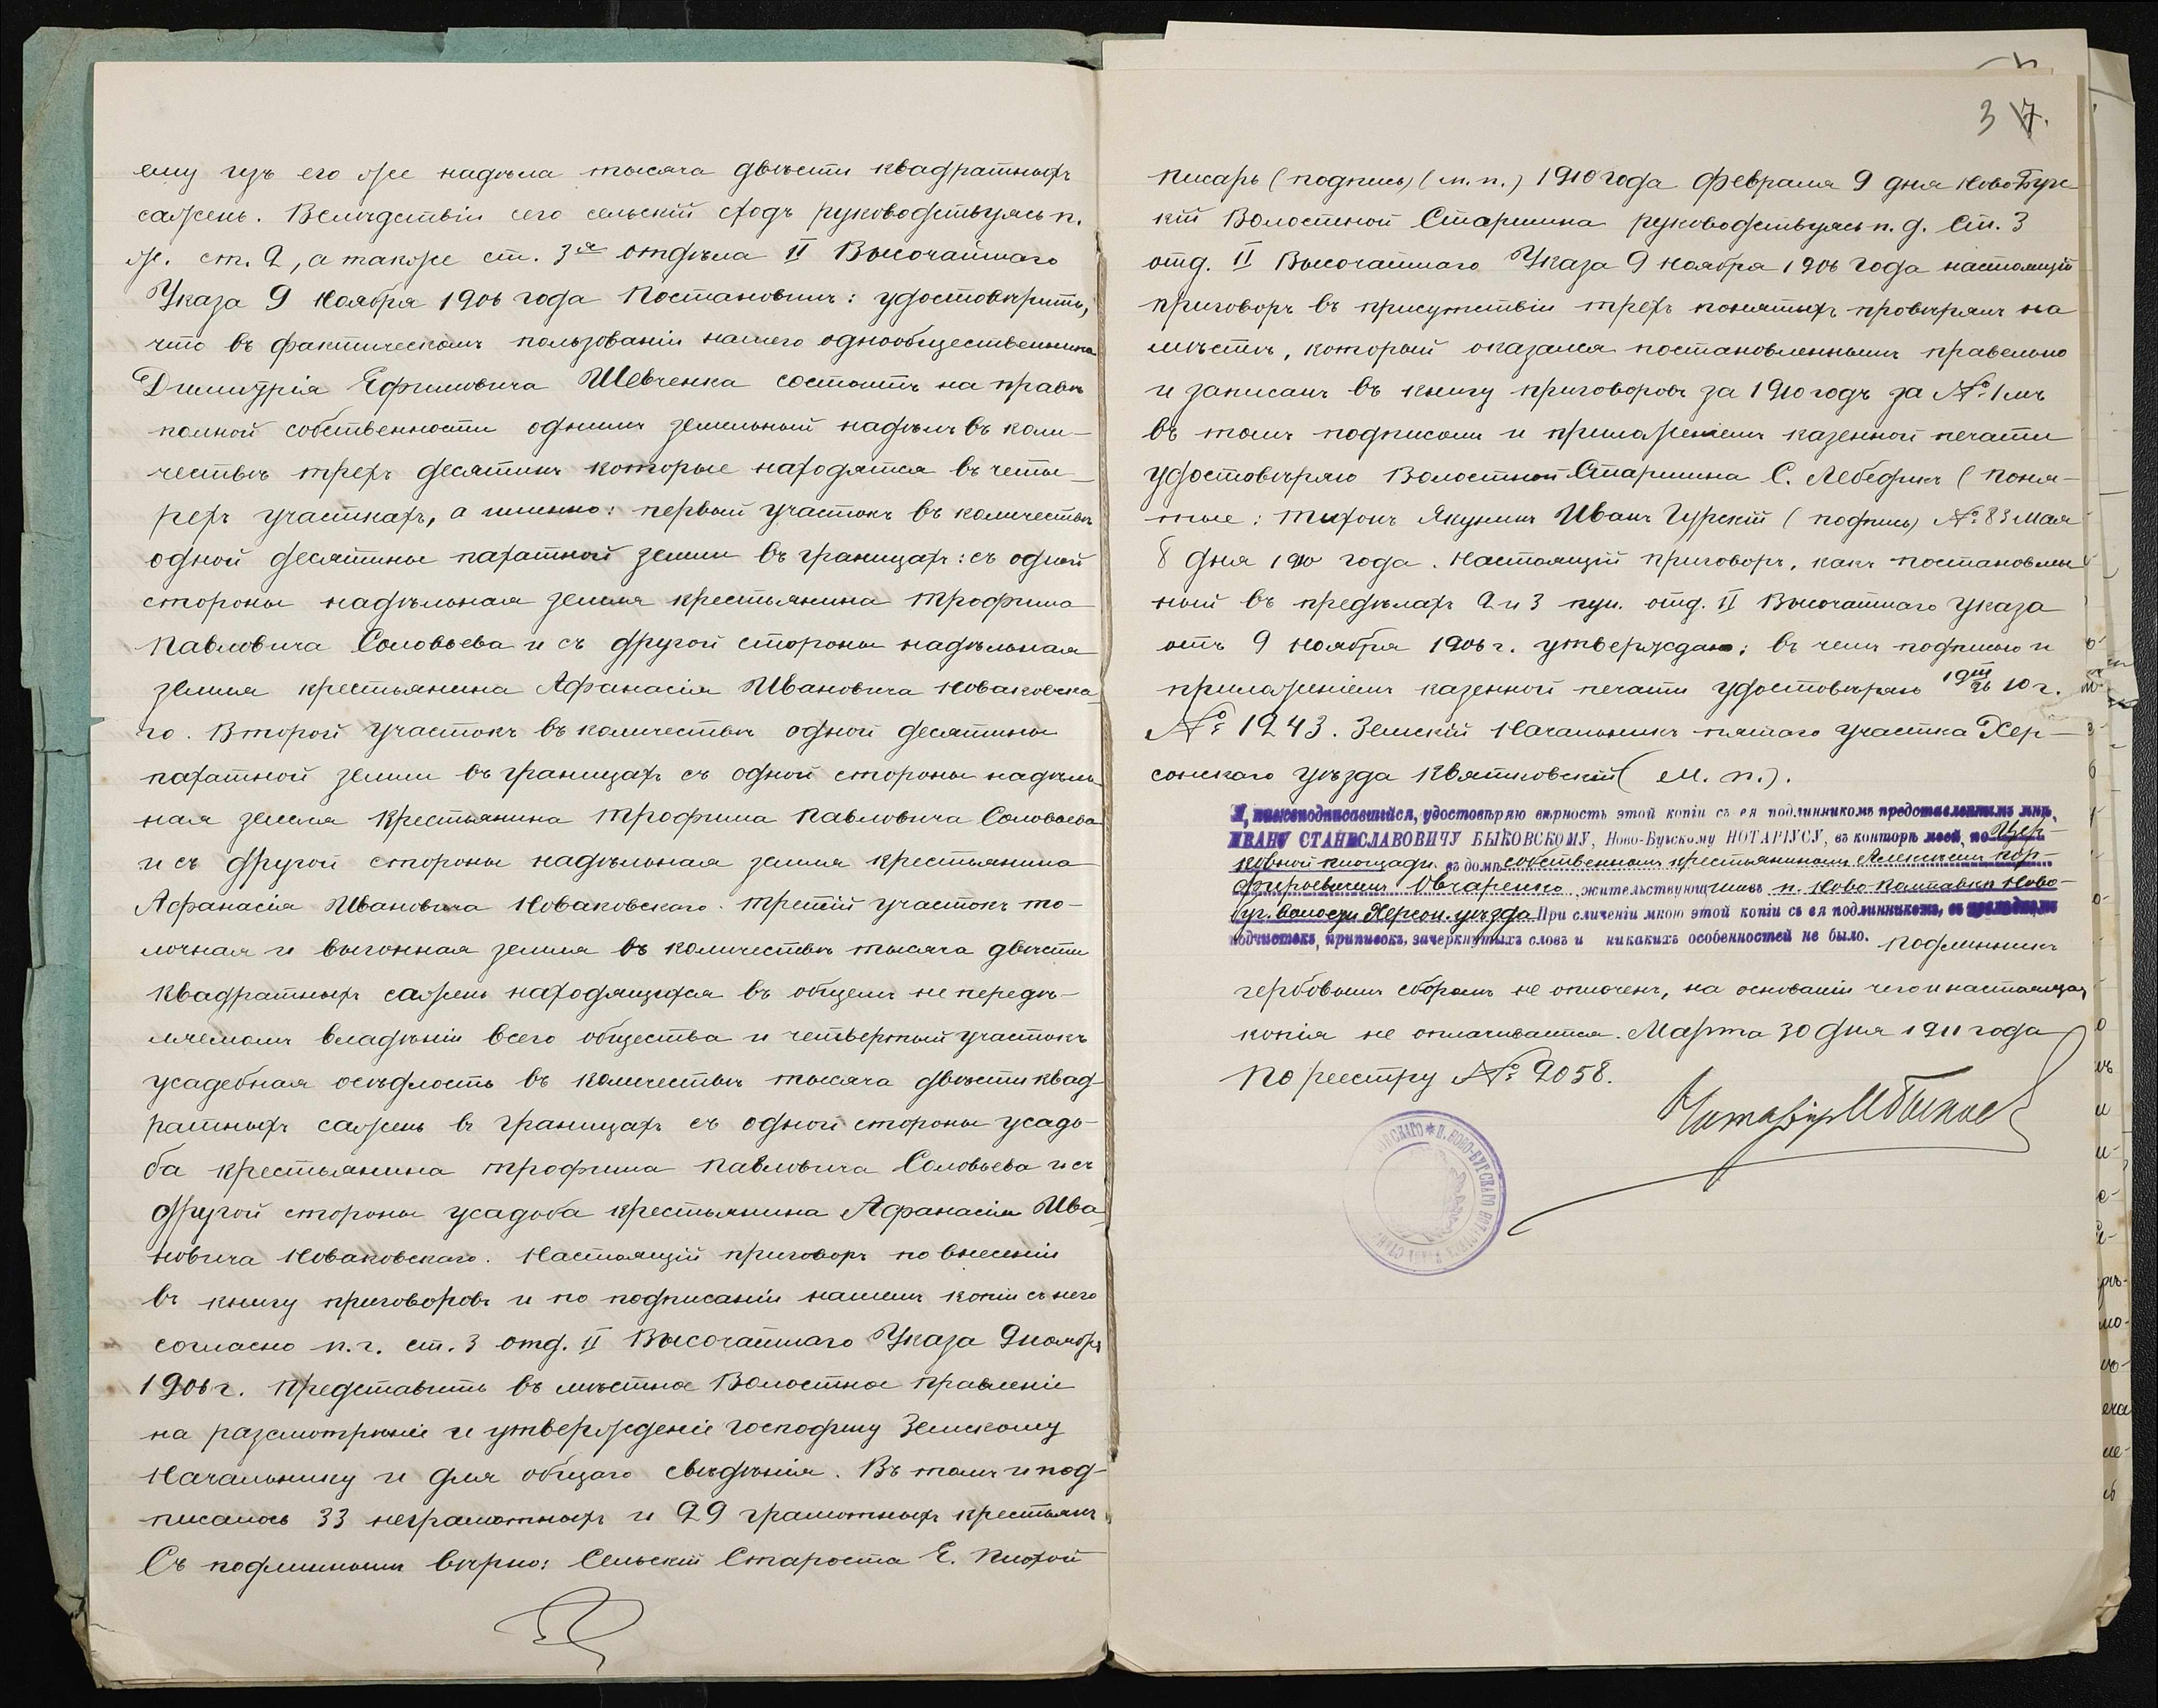 ему изъ его же надѣла тысяча двѣсти квадратныхъ
сажень. Вслѣдствіи сего сельскій сходъ руководствуясь п.
ж. ст. 2, а также ст. 3я отдѣла II Высочайшаго
Указа 9 Ноября 1906 года Постановилъ: удостовѣрить,
что въ фактическомъ пользованіи нашего однообщественника
Димитрія Ефимовича Шевченка состоитъ на правѣ
полной собственности однимъ земельный надѣлъ въ коли-
чествѣ трехъ десятинъ которые находятся въ четы-
рехъ участкахъ, а именно: первый участокъ въ количествѣ
одной десятины пахатной земли въ границахъ: съ одной
стороны надѣльная земля крестьянина Трофима
Павловича Соловьева и съ другой стороны надѣльная
земля крестьянина Афанасія Ивановича Новаковска-
го. Второй участокъ въ количествѣ одной десятины
пахатной земли въ границахъ съ одной стороны надѣль-
ная земля крестьянина Трофима Павловича Соловьева
и съ другой стороны надѣльная земля крестьянина
Афанасія Ивановича Новаковскаго. Третій участокъ то-
лочная и выгонная земля въ количествѣ тысяча двѣсти
квадратныхъ сажень находящихся въ общемъ не передѣ-
ляемомъ владѣніи всего общества и четвертый участокъ
усадебная осѣдлость въ количествѣ тысяча двѣсти квад-
ратныхъ сажень въ границахъ съ одной стороны усадь-
ба крестьянина Трофима Павловича Соловьева и съ
другой стороны усадьба крестьянина Афанасія Ива-
новича Новаковскаго. Настоящій приговоръ по внесеніи
въ книгу приговоровъ и по подписаніи нашемъ копіи съ него
согласно п. г. ст. 3 отд. II Высочайшаго Указа 9 ноября
1906 г. представить въ мѣстное Волостное Правленіе
на разсмотрѣніе и утвержденіе Господину Земскому
Начальнику и для общаго свѣдѣнія. Въ томъ и под-
писалось 33 неграмотныхъ и 29 грамотныхъ крестьянъ
Съ подлиннымъ вѣрно: Сельскій Староста Е. Плохой
37.
писарь (подпись) (м. п.) 1910 года Февраля 9 дня Ново Бугс-
кій Волостной Старшина руководствуясь п. д. Ст. 3
отд. II Высочайшаго Указа 9 Ноября 1906 года настоящій
приговоръ въ присутствіи трехъ понятыхъ провѣрялъ на
мѣстѣ, который оказался постановленнымъ правельно
и записанъ въ книгу приговоровъ за 1910 годъ за № 1мъ
въ томъ подписомъ и приложеніемъ казенной печати
удостовѣряю Волостной Старшина С. Лебедикъ (Поня-
тые: Тихонъ Якунинъ Иванъ Гурскій (подпись) № 83 Мая
8 дня 1910 года. Настоящій приговоръ, какъ постановлен-
ный въ предѣлахъ 2 и 3 пун. отд. II Высочайшаго Указа
отъ 9 Ноября 1906 г. утверждаю; въ чемъ подписью и
приложеніемъ казенной печати удостовѣряю 10 г.
№ 1243. Земскій Начальникъ пятаго участка Хер-
сонскаго уѣзда Квятковскій (М. п.).
Я, нижеподписавшійся, удостовѣряю вѣрность этой копіи съ ея подлинникомъ представленнымъ мнѣ,
ИВАНУ СТАНИСЛАВОВИЧУ БЫКОВСКОМУ, Ново-Бугскому НОТАРІУСУ, въ конторѣ моей, по Цер-
ковной площади въ домѣ собственномъ крестьяниномъ Алексѣемъ Пор-
фирьевичемъ Овчаренко, жительствующимъ п. Ново-Полтавки Ново-
буг. волости Херсон. уѣзда При сличеніи мною этой копіи съ ея подлинникомъ, въ послѣднемъ
подчистокъ, приписокъ, зачеркнутыхъ словъ и никакихъ особенностей не было. Подлинникъ
гербовымъ сборомъ не оплоченъ, на основаніи чего и настоящая
копія не оплачивается. Марта 30 дня 1911 года
По реестру № 2058.
Нотаріусъ И Быковс